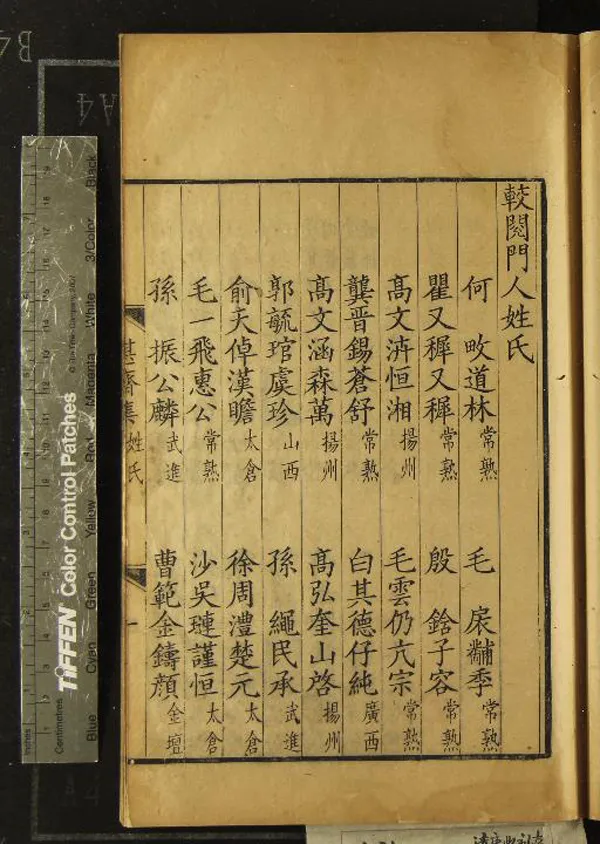 較閱門人姓氏
何 畋道林 常熟 毛 扆黼季 常熟
瞿又穉又穉 常熟 殷 鋡子容 常熟
髙文洊恒湘 揚州 毛雲仍亢宗 常熟
龔晋錫蒼舒 常熟 白其德仔純 廣西
髙文涵森萬 揚州 髙弘奎山啓 揚州
郭毓琯虞珍 山西 孫 繩民承 武進
俞天倬漢瞻 太倉 徐周澧楚元 太倉
毛一飛惠公 常熟 沙吳璉謹恒 太倉
孫 振公麟 武進 曹範金鑄顔 金壇
甚齋集 姓氏 一
TIFFEN Color Control Patches
© The Tiffen Company, 2007
Inches
Centimetres
Blue Cyan Green Yellow Red Magenta White 3/Color Black
A4
B4
A4